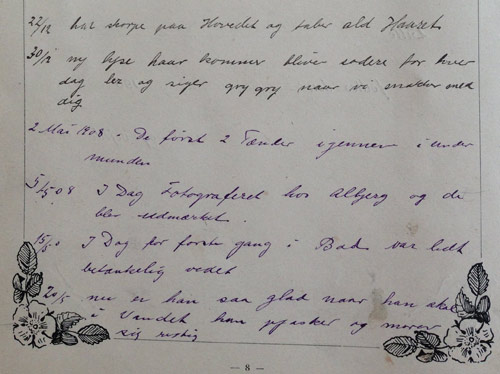 22/12 har skorpe paa Hovedet og taber ald Haaret
30/12 ny lyse haar kommer bliver sødere for hver
dag ler og siger gry gry naar vi snakker med
dig
2 Mai 1908 - De først 2 Tænder igennem i under
munden
5/5 08 I Dag Fotograferet hos Alberg og de
blev udmærket.
15/5 I Dag for første gang i Bad, var lidt
betænkelig vedet
20/5 nu er han saa glad naar han skal
i Vandet han pjasker og morer
sig rigtig
— 8 —